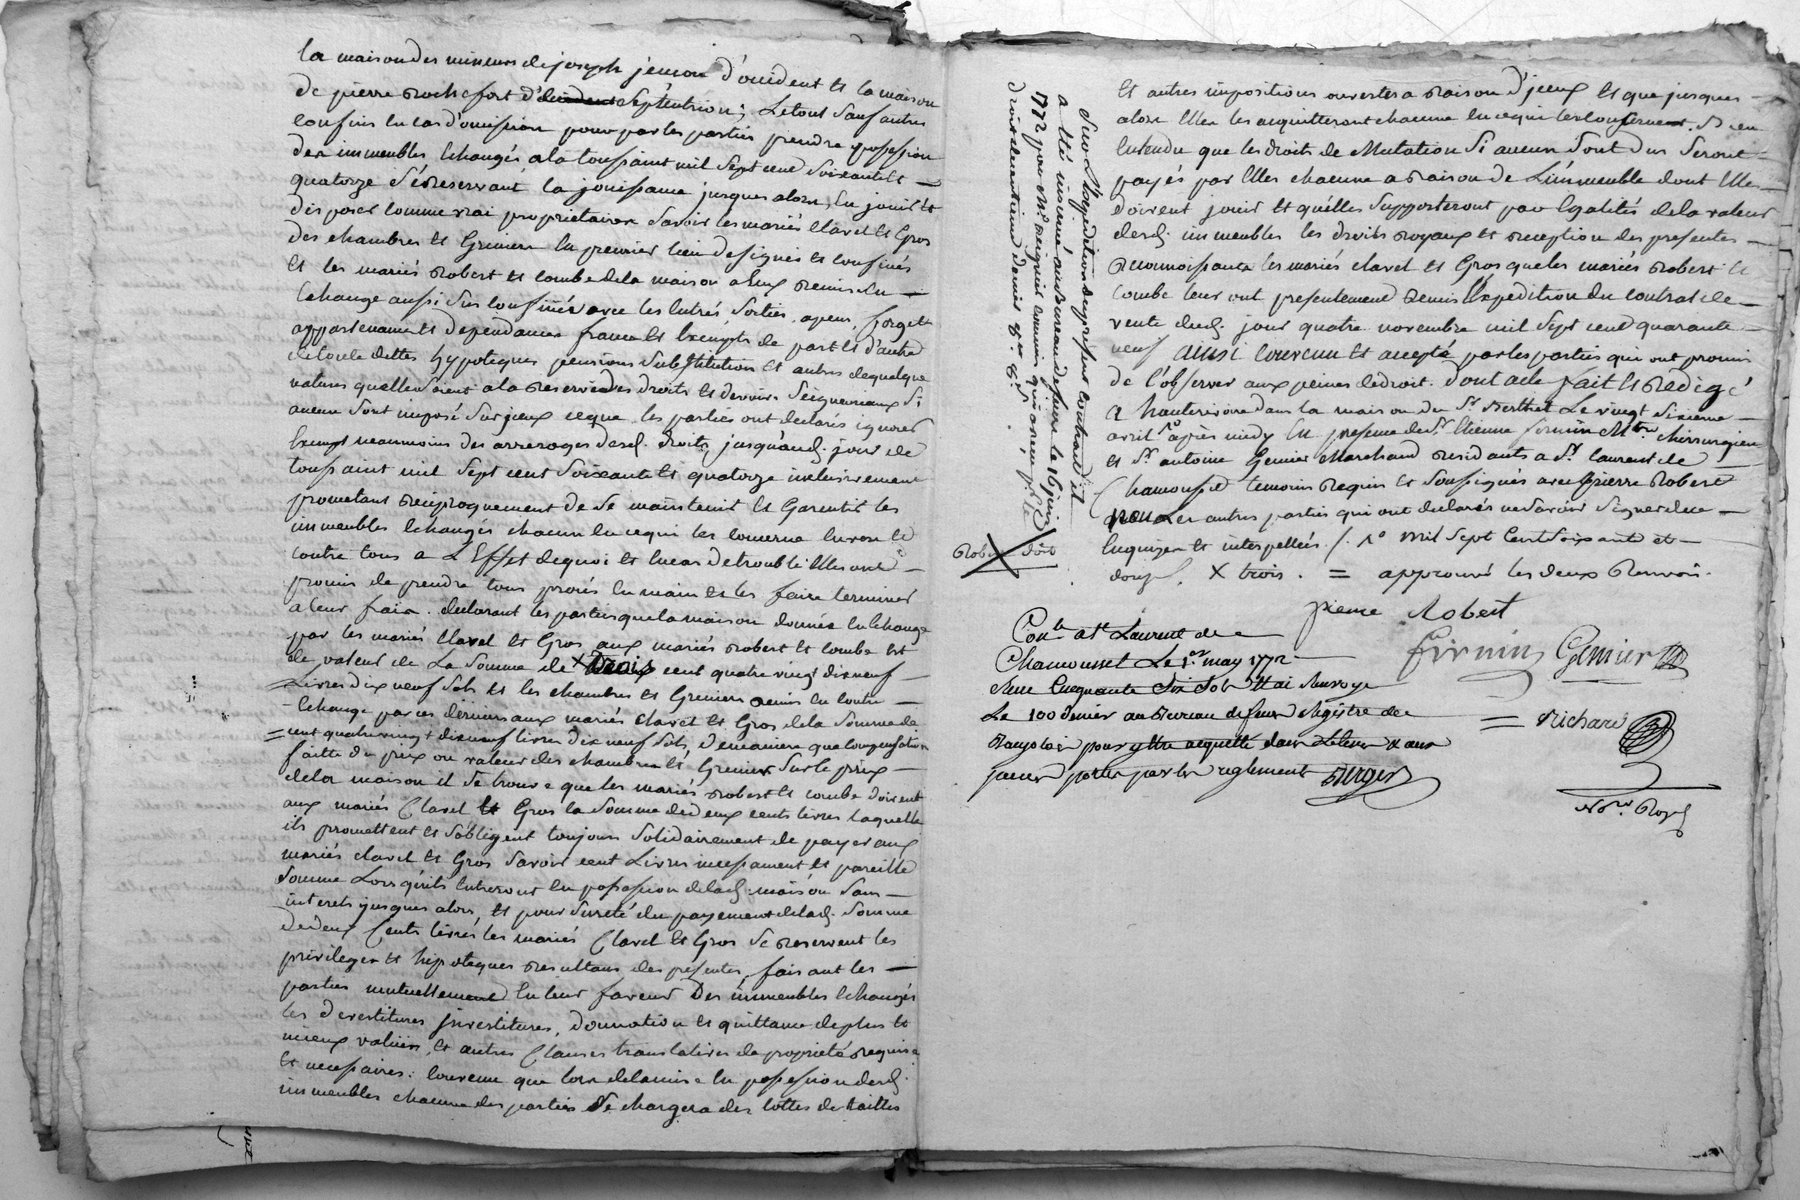 la maison des mineurs de joseph jemon d'occident et la maison
de pierre Rochefort d'occident Septentrion; Letout Sauf autres
confins en cas d'omission pour par les parties prendre possession
des immeubles Echangés ala toussaint mil Sept cent Soixante et
quatorze S'éreservant la jouissance jusques alors, En jouir et
disposer comme vrai proprietaires Savoir les mariés Clavel et Gros
des chambres et Greniers En premier lieu designés et confinés
et les mariés Robert et Combe dela maison a Eux Remise En
Echange aussi Sus confinée avec les Entrés Sorties,
appartenances et dependances franc et Exempts de part et d'autre
de toute dettes hypoteques pensions Substitution et autres de quelque
natures quelle Soient ala Reserve des droits et devoirs Seigneuriaux Si
aucun Sont imposé Sur jceux ceque les parties ont declarés ignorer
Exempt neanmoins des arrerages desd. droits jusquaud. jour de
toussaint mil Sept cent Soixante et quatorze inclusivement
prometant Reciproquement de Se maintenir et Garentir les
immeubles Echangés chacun En cequi les concerne Envers et
contre tous a L'Effet dequoi et En cas de trouble Elles ont
promis de prendre tous procés En main et les faire terminer
a leur fait. declarant les parties que la maison donnée En Echange
par les mariés Clavel et Gros aux mariés Robert et Combe Est
de valeur de La Somme de X trois cent quatre vingt dixneuf
Livres dix neuf Sols et les chambres et Greniers Remis En contre
Echange par ces derniers aux mariés Clavel et Gros dela Somme de
= cent quatre vingt dixneuf livres dix neuf Sols, De maniere que Compensation
faitte du prix ou valeur des chambres et Greniers Sur le prix
dela maison il Se trouve que les mariés Robert et Combe doivent
aux mariés Clavel et Gros la Somme de deux cents livres laquelle
ils promettent et S'obligent toujours Solidairement de payer aux
mariés Clavel et Gros Savoir cent Livres incessament et pareille
Somme Lors qu'ils Entreront En possession de lad. maison Sans
interets jusques alors, et pour Sureté du payement de lad. Somme
de deux Cents livres les mariés Clavel et Gros Se Reservent les
privileges et hipoteques Resultans des presentes, faisant les
parties mutuellement En leur faveur Des immeubles Echangés
les Devestitures jnvestitures, Donnation et quittance de plus et
mieux values, et autres Clauses translatives de proprieté Requises
et necessaires: Convenu que lors dela mise En possession desd.
immeubles chacune des parties Se chargera des cottes de tailles
et autres impositions ouvertes a Raison d'jceux et que jusques
alors Elles les acquitteront chacune En cequi les Concernent. Bien
Entendu que les droits de Mutation Si aucun Sont Dus Seront
payés par Elles chacune a Raison de L'immeuble dont Elles
doivent jouir et qu'elles Supporteront par Egalités dela valeur
desd. immeubles les droits Royaux et Reception des presentes
Reconnoissants les mariés Clavel et Gros que les mariés Robert et
Combe leur ont presentement Remis l'Expedition du Contrat de
vente dud. jour quatre novembre mil Sept cent quarante
neuf ainsi Convenu et accepté par les parties qui ont promis
de l'observer aux peines de droit. Dont acte fait et Rédigé
a hauterivoire dans la maison du Sr. Berthet Le vingt Sixieme
avril 1º après midy En presence de Sr. Etienne firmin Mtre. Chirurgien
et Sr. antoine Genier Marchand Residants a St. Laurent de
Chamousset temoins Requis et Soussignés avec pierre Robert
non Les autres parties qui ont declarés ne Savoir Signer de ce
Enquises et interpellées /. 1º Mil Sept Cent Soixante et
douze. X trois. = approuvé les deux Renvois.
pierre Robert
firmin Genier
= Richard
Nore. Royl.
Conlé a St Laurent de
Chamousset Le 1er may 1772
Reçu Cinquante Six Sols Et ai Renvoyé
Le 100 denier au Bureau de feurs Registre de
pour y Etre acquitté dans Le tems
peines portées par les reglement Burger
Robert doit
Sur L'Expedition du present Contrat il
a été insinué au Bureau de feurs le 16 juin
1772 par Mr. commis qui a reçu